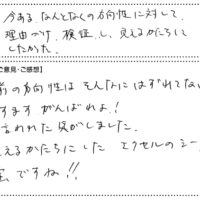 今ある なんとなくの方向性に対して、
理由づけ、検証し、見えるかたちに
したかった。
ご意見・ご感想】
前の方向性は そんなにはずれてな
ますます がんばれよ!
言われた 気がしました。
えるかたちに した エクセルのシー
宝 ですね!!